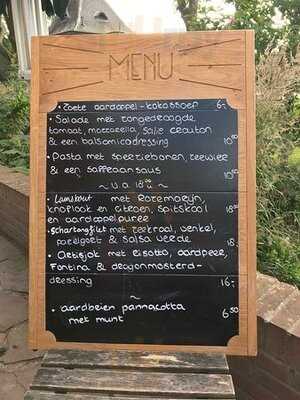 MENU
• Zoete aardappel - kokossoep 6,-
• Salade met zongedroogde
tomaat, mozzarella, salie crouton
& een balsamicodressing 10,50
• Pasta met sperziebonen, zeewier
& een saffraansaus 10,50
~ v.a. 18:00 ~
• Lamshout met Rozemarijn,
knoflook en citroen, spitskool
en aardappelpuree 18,50
• Schartongfilet met zeekraal, venkel,
parelgort & salsa verde 18,
• Artisjok met risotto, aardpeer,
Fontina & dragonmosterd-
dressing 16,-
~
• aardbeien pannacotta
met munt 6,50